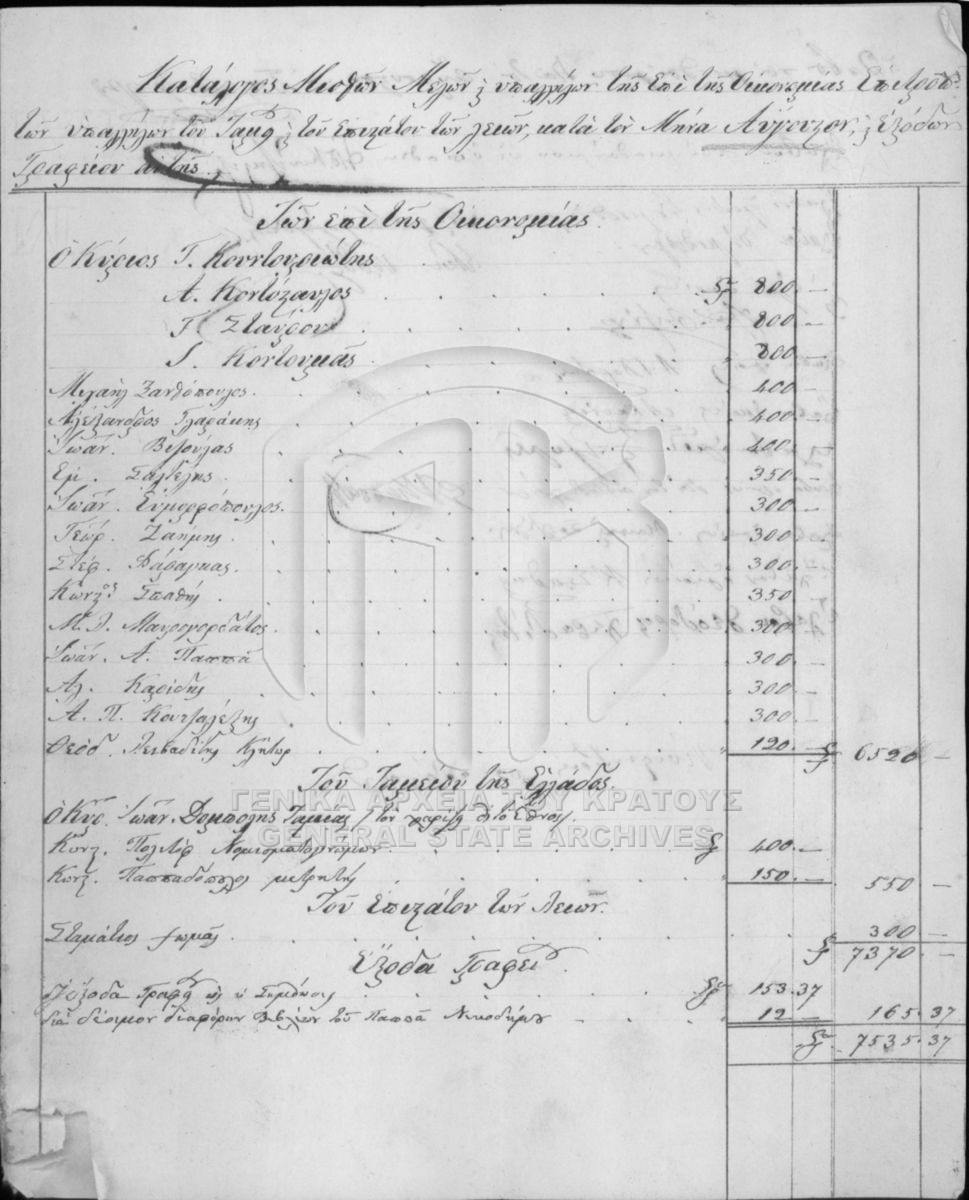 Κατάλογος Μισθών Μελών ϗ υπαλλήλων της Επί της Οικονομίας Επιτροπ.
των υπαλλήλων του Ταμ. ϗ του Επιστάτου των κατά τον Μήνα Αύγουστον, ϗ Εξόδων
Γραφείου αυτής.
Των επί της Οικονομίας.
Ο Κύριος Γ. Κουντουριώτης
Α. Κοντόσταυλος 800. —
Γ. Σταύρου 800 —
Ι. Κοντουμάς 800 —
Μιχαήλ Ξανθόπουλος. 400 —
Αλέξανδρος Γλαράκης 400. —
Ιωάν. 400. —
Εμ. Σαλτέλης. 350. —
Ιωάν. Ευμορφόπουλος. 300. —
Γεώρ. Ζαήμης. 300. —
Στέφ. 300. —
Κωνστ. Σπαθής 350
Μ. Δ. Μαυρογορδάτος 300. —
Ιωάν. Α. Παππά 300. —
Αλ. Καρίδης 300. —
Α. Π. Κουτζαλέξης 300. —
Θεόδ. Κλήτωρ 120. — 6520 —
Του Ταμείου της Ελλάδος.
Ο Κύρ. Ιωάν. Δομπόλης Ταμίας
Κωνστ. 400. —
Κωνστ. Παππαδόπουλος μετρητής 150. — 550 —
Του Επιστάτου των
Σταμάτιος 300 —
7370 —
Έξοδα Γραφεί.
έξοδα Γραφ. 153.37
Διά δέσιμον διαφόρων βιβλίων του Παππά Νικοδήμου 12 — 165.37
7535.37
ΓΕΝΙΚΑ ΑΡΧΕΙΑ ΤΟΥ ΚΡΑΤΟΥΣ
GENERAL STATE ARCHIVES